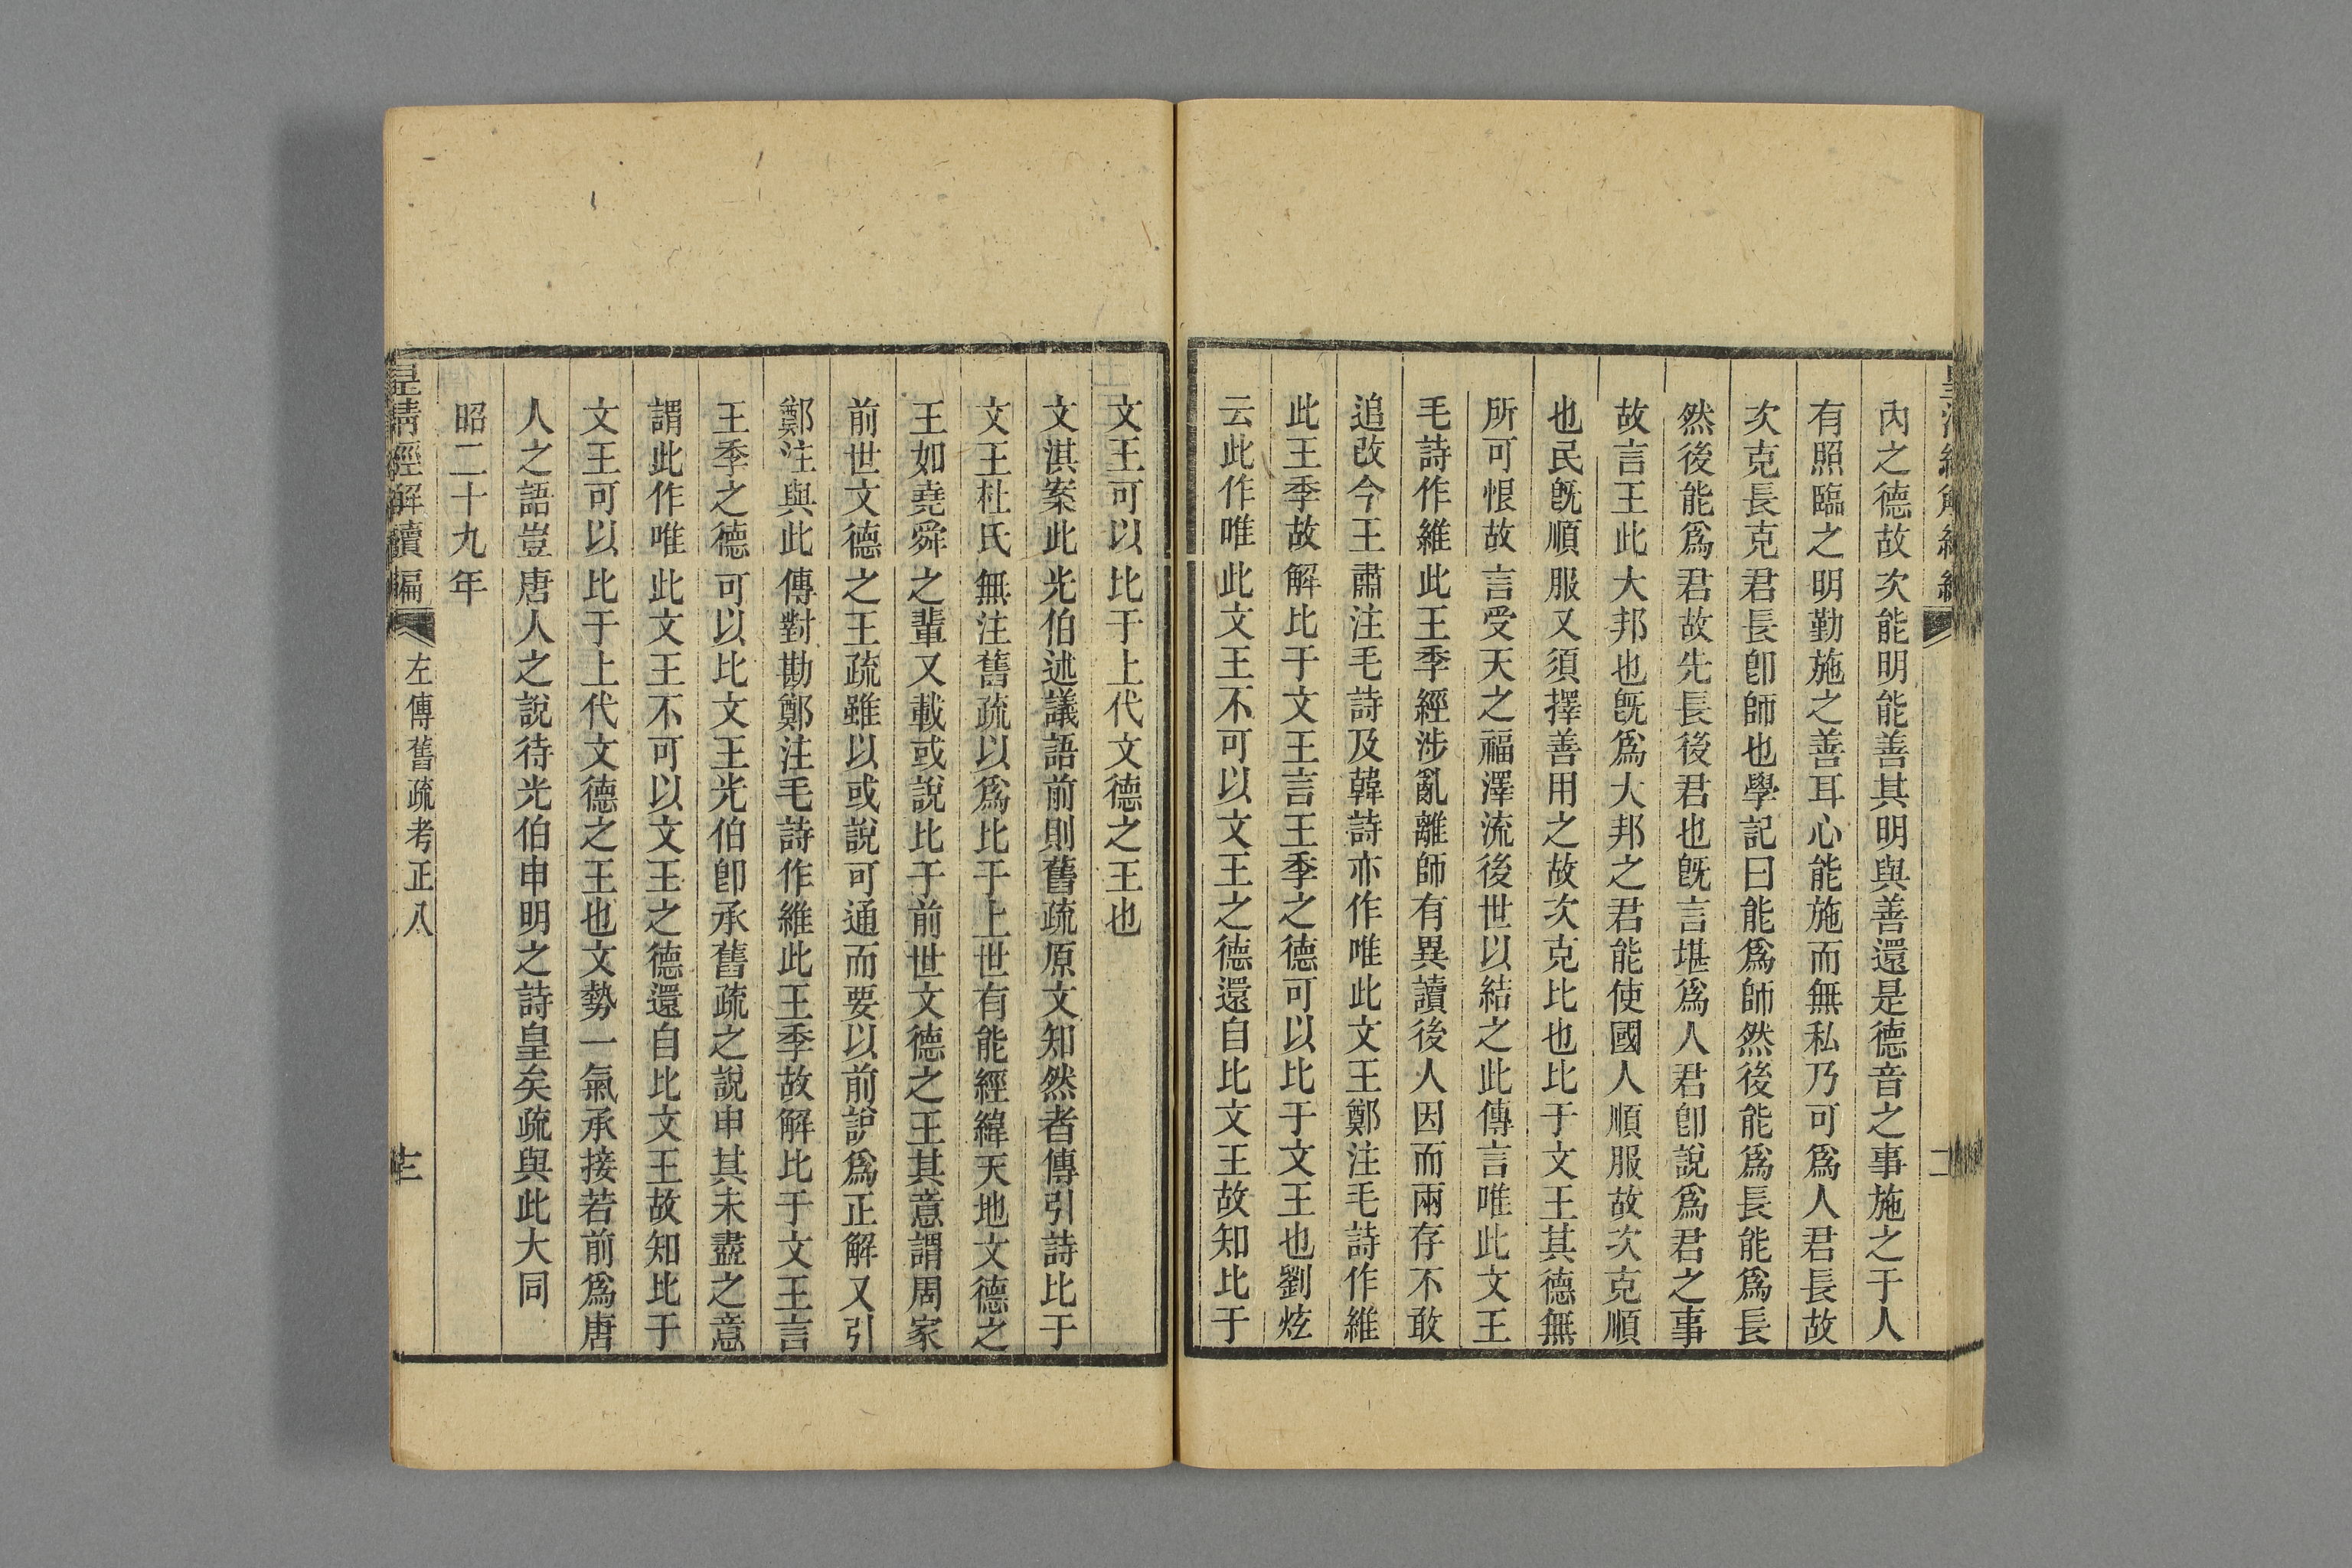 內之德故次能明能善其明與善還是德音之事施之于人
有照臨之明勤施之善耳心能施而無私乃可爲人君長故
次克長克君長卽師也學記曰能爲師然後能爲長能爲長
然後能爲君故先長後君也旣言堪爲人君卽說爲君之事
故言王此大邦也旣爲大邦之君能使國人順服故次克順
也民旣順服又須擇善用之故次克比也比于文王其德無
所可恨故言受天之福澤流後世以結之此傳言唯此文王
毛詩作維此王季經涉亂離師有異讀後人因而兩存不敢
追改今王肅注毛詩及韓詩亦作唯此文王鄭注毛詩作維
此王季故解比于文王言王季之德可以比于文王也劉炫
云此作唯此文王不可以文王之德還自比文王故知比于
文王可以比于上代文德之王也
文淇案此光伯述議語前則舊疏原文知然者傳引詩比于
文王杜氏無注舊疏以爲比于上世有能經緯天地文德之
王如堯舜之輩又載或說比于前世文德之王其意謂周家
前世文德之王疏雖以或說可通而要以前說爲正解又引
鄭注與此傳對勘鄭注毛詩作維此王季故解比于文王言
王季之德可以比文王光伯卽承舊疏之說申其未盡之意
謂此作唯此文王不可以文王之德還自比文王故知比于
文王可以比于上代文德之王也文勢一氣承接若前爲唐
人之語豈唐人之說待光伯申明之詩皇矣疏與此大同
昭二十九年
皇清經解續編 左傳舊疏考正八